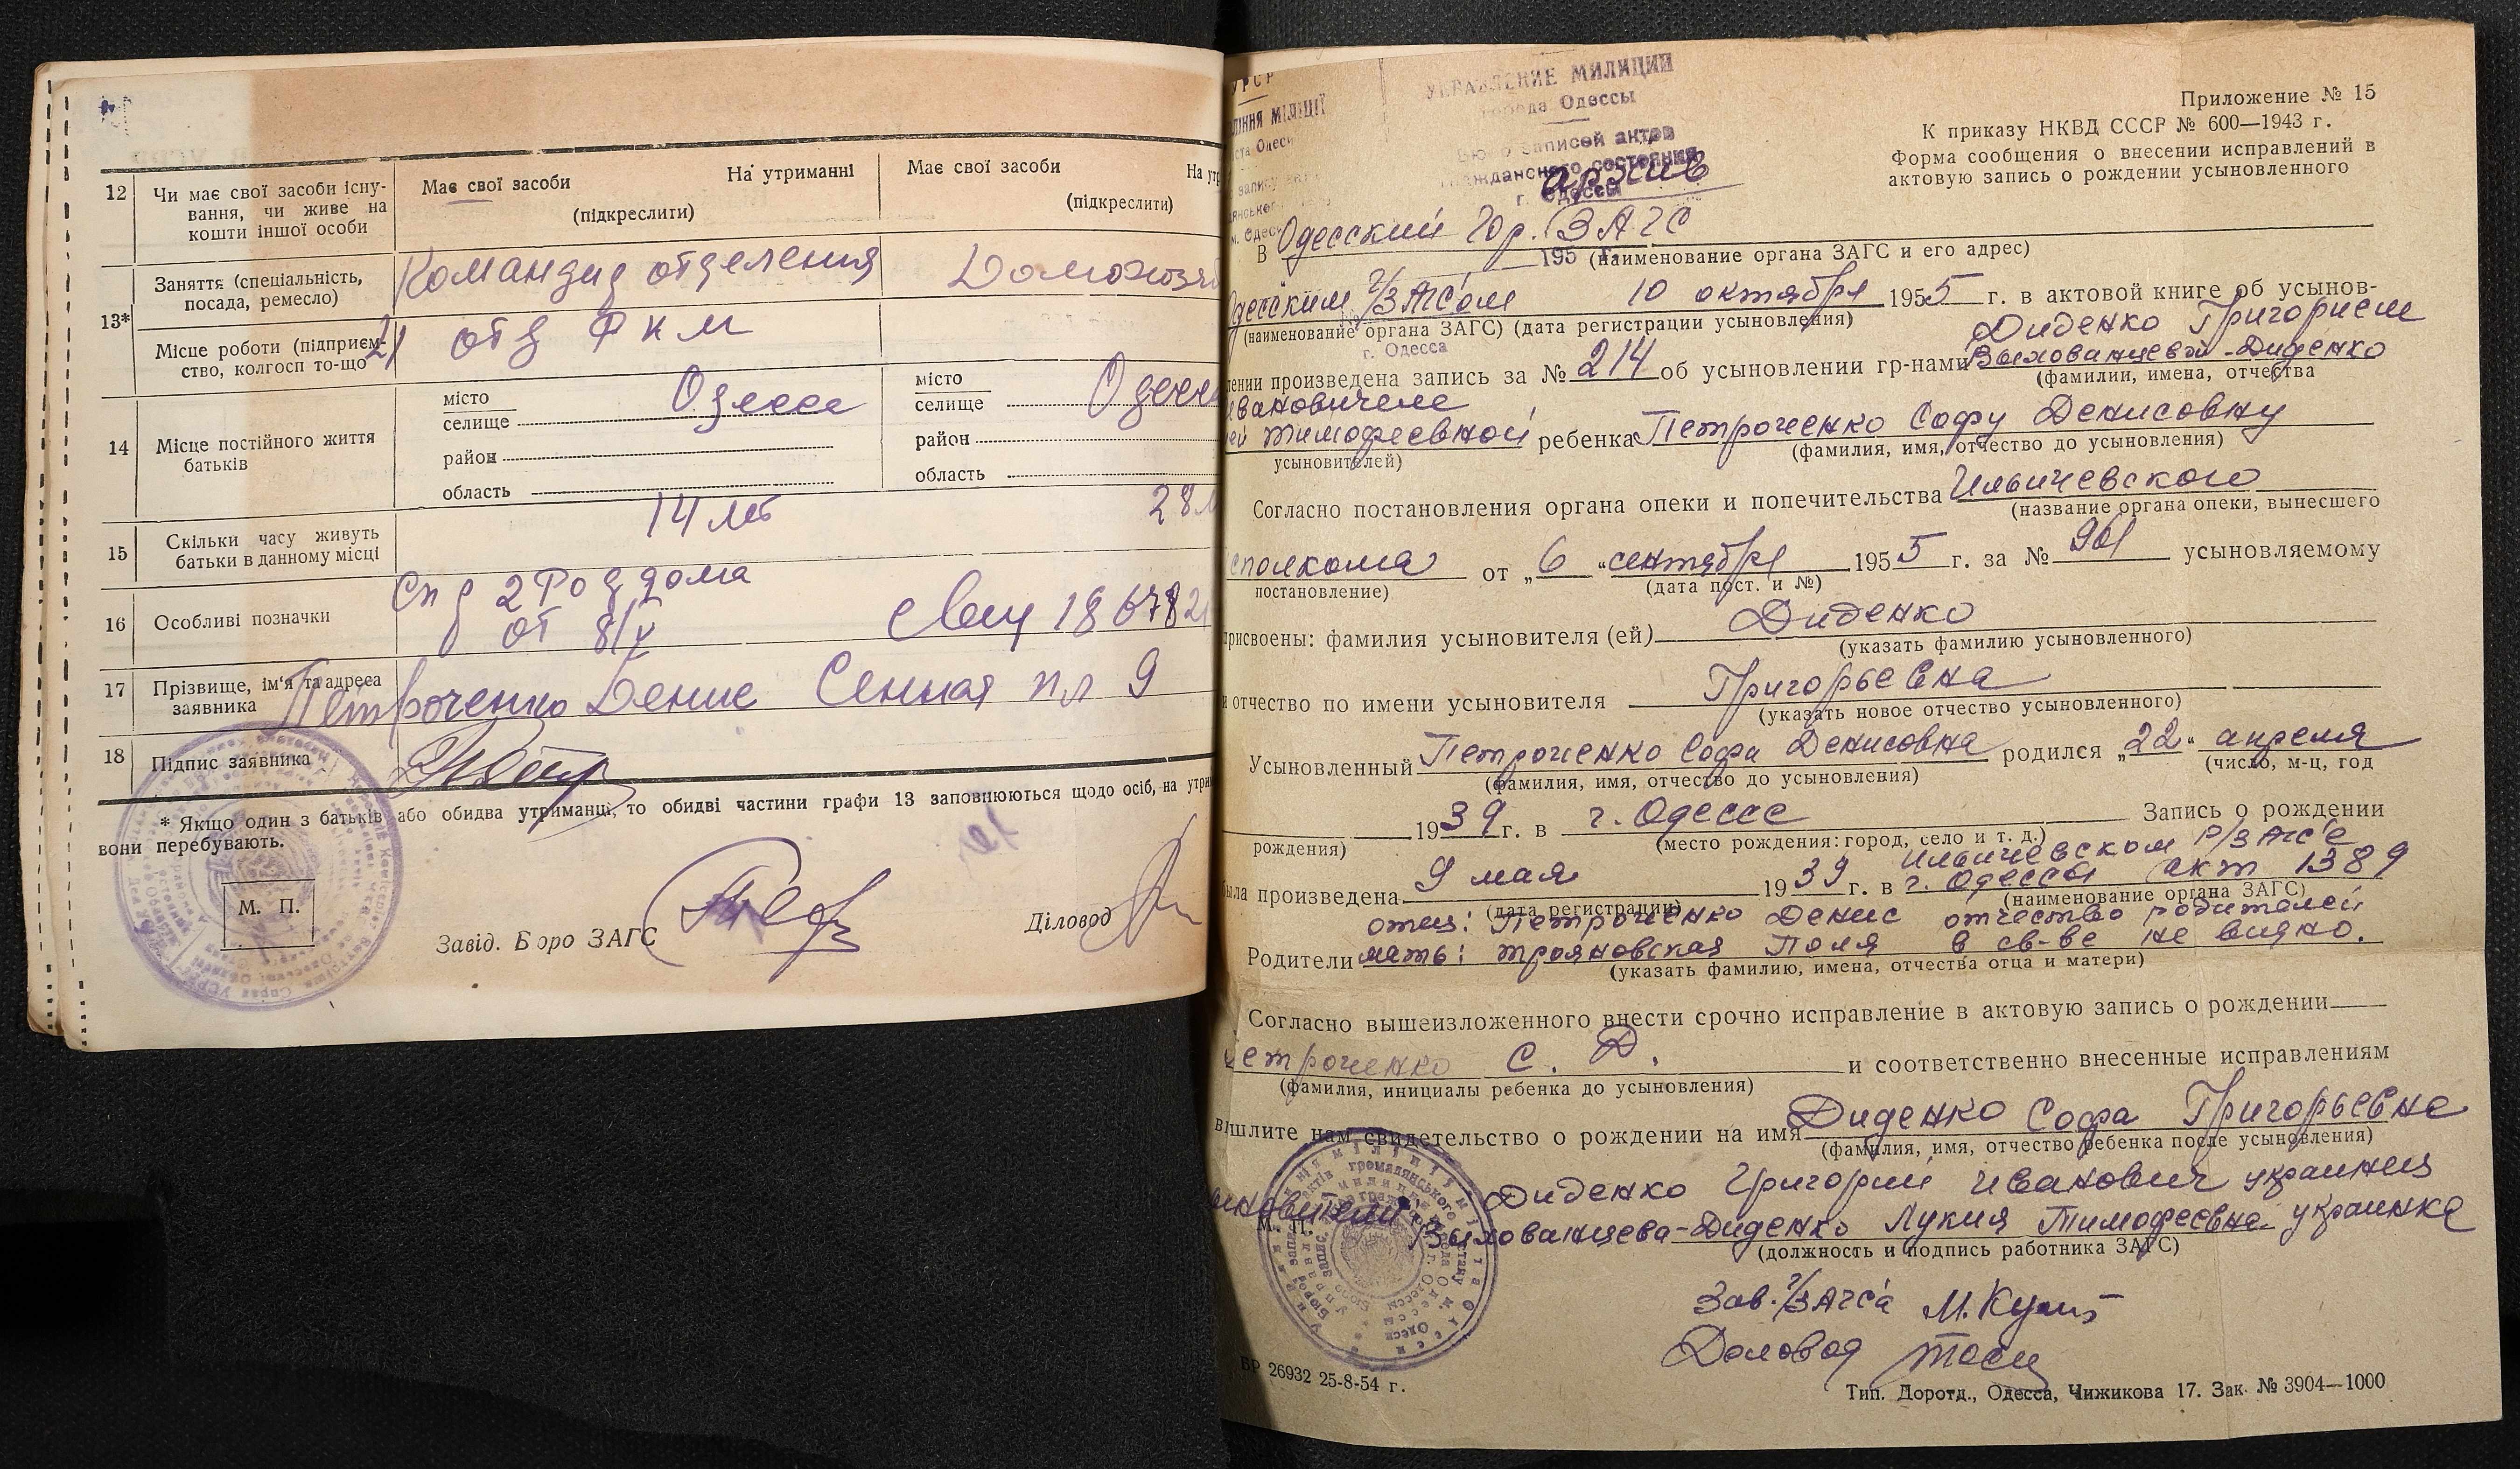 12 Чи має свої засоби існу-
вання, чи живе на
кошти іншої особи
Має свої засоби На утриманні
(підкреслити)
Має свої засоби На утр
(підкреслити)
13*
Заняття (спеціальність,
посада, ремесло)
Командир отделения Домохозяй
Місце роботи (підприєм-
ство, колгосп то-що
21 отд РКМ
14 Місце постійного життя
батьків
місто
селище Одесса
район
область
місто
селище Одесса
район
область
15 Скільки часу живуть
батьки в данному місці
14 лет 28 л
16 Особливі позначки
Спр 2 Роддома
от 8/V свид 186782
17 Прізвище, ім'я та адреса
заявника
Петроченко Денис Сенная пл 9
18 Підпис заявника
* Якщо один з батьків або обидва утриманці, то обидві частини графи 13 заповнюються щодо осіб, на утри
вони перебувають.
М. П.
Завід. Бюро ЗАГС
Діловод
УПРАВЛЕНИЕ МИЛИЦИИ
города Одессы
Бюро записей актов
гражданского состояния
г. Одессы
архив
195 г.
Приложение № 15
К приказу НКВД СССР № 600—1943 г.
Форма сообщения о внесении исправлений в
актовую запись о рождении усыновленного
В Одесский Гор. ЗАГС
(наименование органа ЗАГС и его адрес)
Одесским г/ЗАГСом 10 октября 1955 г. в актовой книге об усынов-
(наименование органа ЗАГС) (дата регистрации усыновления)
г. Одесса
Диденко Григорием
лении произведена запись за № 214 об усыновлении гр-нами Выхованцевой-Диденко
(фамилии, имена, отчества
Ивановичем
ей Тимофеевной ребенка Петроченко Софу Денисовну
усыновителей) (фамилия, имя, отчество до усыновления)
Согласно постановления органа опеки и попечительства Ильичевского
(название органа опеки, вынесшего
сполкома от „6" сентября 1955 г. за № 961 усыновляемому
постановление) (дата пост. и №)
присвоены: фамилия усыновителя (ей) Диденко
(указать фамилию усыновленного)
и отчество по имени усыновителя Григорьевна
(указать новое отчество усыновленного)
Усыновленный Петроченко Софа Денисовна родился „22" апреля
(фамилия, имя, отчество до усыновления) (число, м-ц, год
1939 г. в г. Одессе Запись о рождении
рождения) (место рождения: город, село и т. д.)
Ильичевском Р/ЗАГС'е
была произведена 9 мая 1939 г. в г. Одессы акт 1389
(дата регистрации) (наименование органа ЗАГС)
отец: Петроченко Денис отчество родителей
Родители мать: Трояновская Поля в св-ве не видно.
(указать фамилию, имена, отчества отца и матери)
Согласно вышеизложенного внести срочно исправление в актовую запись о рождении
Петроченко С. Д. и соответственно внесенные исправлениям
(фамилия, инициалы ребенка до усыновления)
вышлите нам свидетельство о рождении на имя Диденко Софа Григорьевна
(фамилия, имя, отчество ребенка после усыновления)
Диденко Григорий Иванович украинец
Выхованцева-Диденко Лукия Тимофеевна украинка
М. П.
(должность и подпись работника ЗАГС)
Зав. г/ЗАГСа
Деловод
БР 26932 25-8-54 г.
Тип. Доротд., Одесса, Чижикова 17. Зак. № 3904—1000